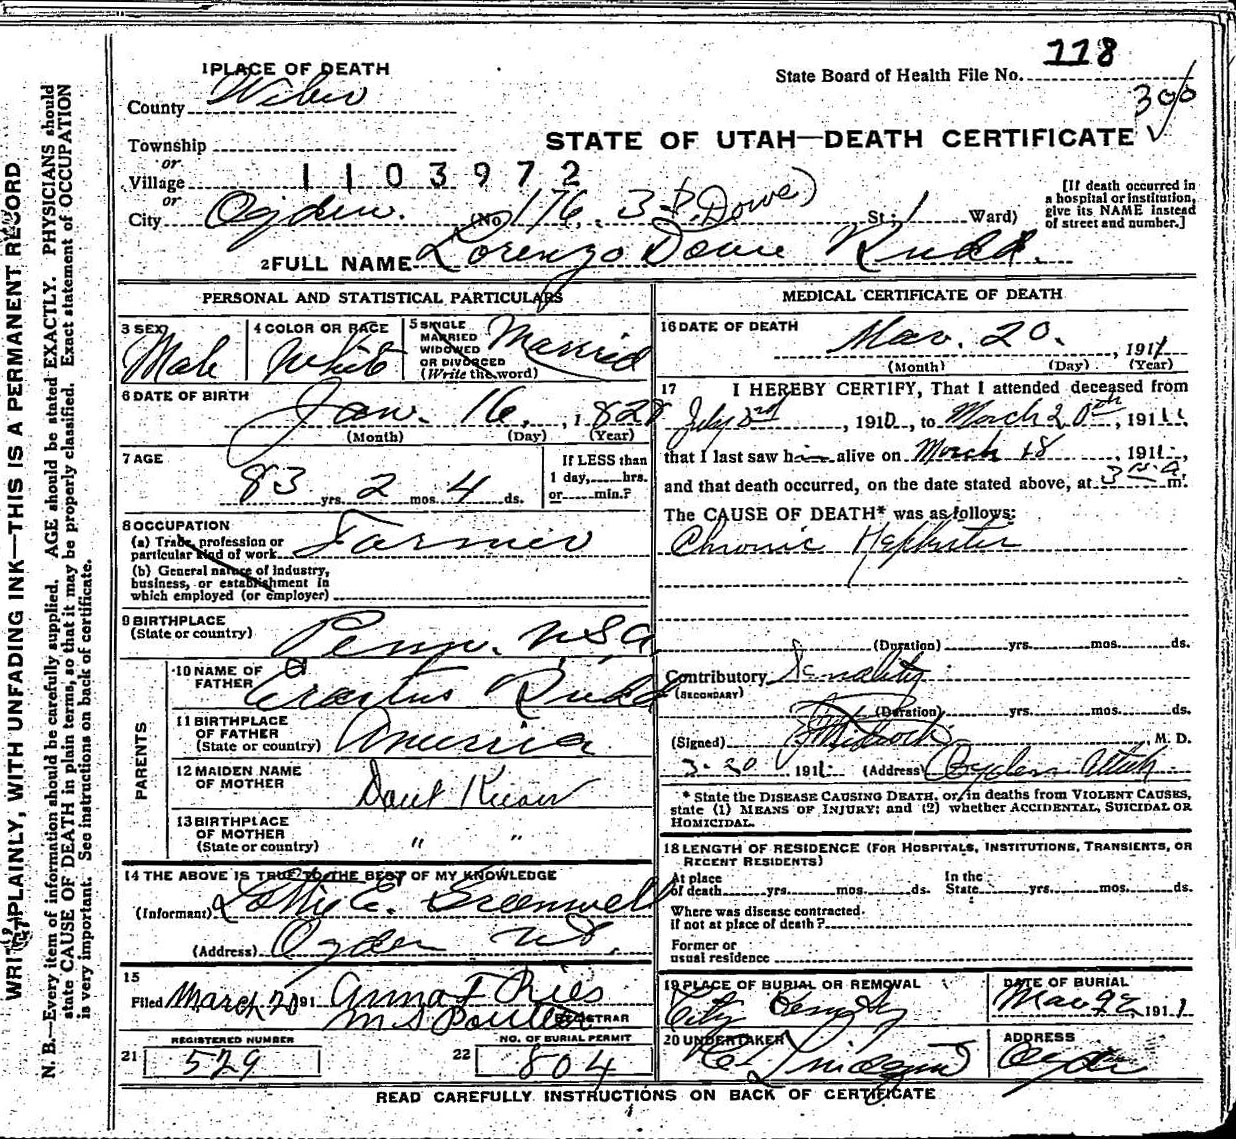 118
State Board of Health File No.
300
1 PLACE OF DEATH
County Weber
STATE OF UTAH—DEATH CERTIFICATE
Township
or
Village 1103972
or
City Ogden. (No. 176. 3rd, St; 1 Ward)
[If death occurred in
a hospital or institution,
give its NAME instead
of street and number.]
2 FULL NAME Lorenzo Dowe Rudd.
PERSONAL AND STATISTICAL PARTICULARS
3 SEX Male
4 COLOR OR RACE White
5 SINGLE
MARRIED
WIDOWED
OR DIVORCED
(Write the word) Married
6 DATE OF BIRTH
Jan. 16, 1828
(Month) (Day) (Year)
7 AGE
83 yrs. 2 mos. 4 ds.
If LESS than
1 day, hrs.
or min.?
8 OCCUPATION
(a) Trade, profession or
particular kind of work Farmer
(b) General nature of industry,
business, or establishment in
which employed (or employer)
9 BIRTHPLACE
(State or country) Penn. USA
PARENTS
10 NAME OF
FATHER Erastus Rudd
11 BIRTHPLACE
OF FATHER
(State or country) America
12 MAIDEN NAME
OF MOTHER Dont Know
13 BIRTHPLACE
OF MOTHER
(State or country) " "
14 THE ABOVE IS TRUE TO THE BEST OF MY KNOWLEDGE
(Informant) Lottie E. Greenwell
(Address) Ogden Ut.
15
Filed March 20 191 Anna F Ries
REGISTRAR
REGISTERED NUMBER
21 529
NO. OF BURIAL PERMIT
22 804
MEDICAL CERTIFICATE OF DEATH
16 DATE OF DEATH
Mar. 20. , 1911
(Month) (Day) (Year)
17 I HEREBY CERTIFY, That I attended deceased from
July 2nd , 1910, to March 20th, 1911,
that I last saw him alive on March 18 , 1911,
and that death occurred, on the date stated above, at 3 m.
The CAUSE OF DEATH* was as follows:
Chronic
(Duration) yrs. mos. ds.
Contributory Senality
(SECONDARY)
(Duration) yrs. mos. ds.
(Signed) M. D.
3-20 1911 (Address) Ogden Utah
* State the DISEASE CAUSING DEATH, or, in deaths from VIOLENT CAUSES,
state (1) MEANS OF INJURY; and (2) whether ACCIDENTAL, SUICIDAL OR
HOMICIDAL.
18 LENGTH OF RESIDENCE (FOR HOSPITALS, INSTITUTIONS, TRANSIENTS, OR
RECENT RESIDENTS)
At place
of death yrs. mos. ds.
In the
State yrs. mos. ds.
Where was disease contracted.
if not at place of death?
Former or
usual residence
19 PLACE OF BURIAL OR REMOVAL
City Cemety
DATE OF BURIAL
Mar 22 1911
20 UNDERTAKER
ADDRESS
Ogden
READ CAREFULLY INSTRUCTIONS ON BACK OF CERTIFICATE
WRITE PLAINLY, WITH UNFADING INK—THIS IS A PERMANENT RECORD
N. B.—Every item of information should be carefully supplied. AGE should be stated EXACTLY. PHYSICIANS should
state CAUSE OF DEATH in plain terms, so that it may be properly classified. Exact statement of OCCUPATION
is very important. See instructions on back of certificate.